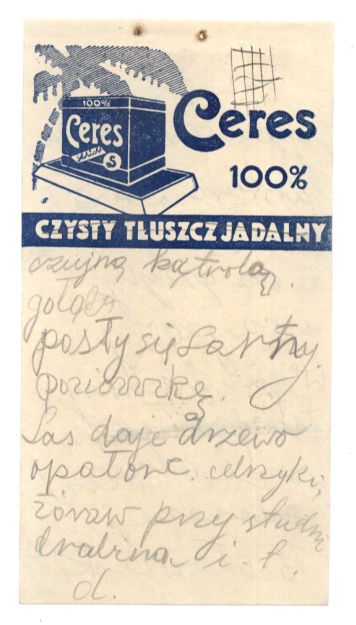 100%
Ceres
S
Ceres
100%
CZYSTY TŁUSZCZ JADALNY
czujną kątrolą.
gołąb
pasły się Sarny.
poziomkę.
Las daje drzewo
opałowe. cebrzyki,
żóraw przy studni
drabina i t.
d.